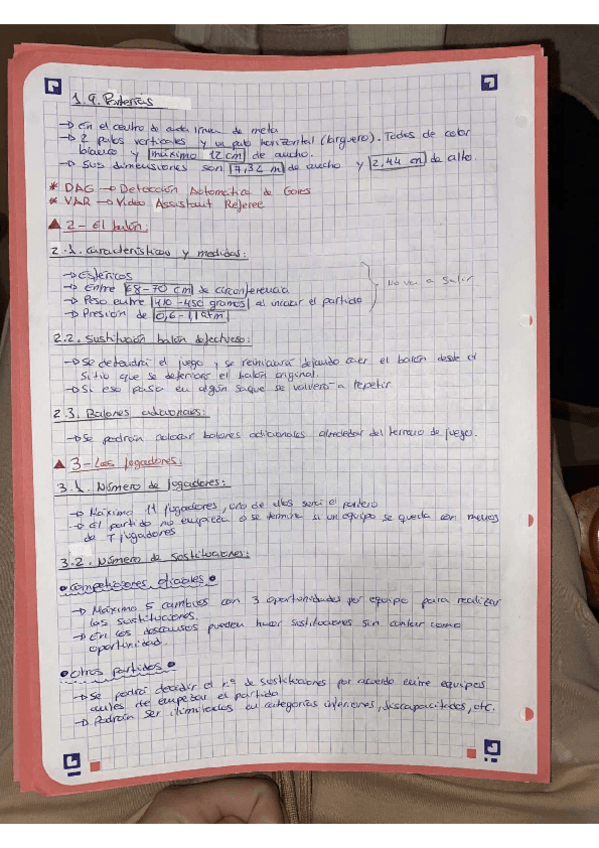 1.9. Porterías
→ En el centro de cada línea de meta
→ 2 palos verticales y un palo horizontal (larguero). Todos de color
blanco y máximo 12 cm de ancho.
→ Sus dimensiones son 7,32 m de ancho y 2,44 m de alto.
* DAG → Detección Automática de Goles
* VAR → Video Assistant Referee
▲ 2- El balón:
2.1. Características y medidas:
→ Esféricos
→ Entre 68-70 cm de circonferencia
→ Peso entre 410-450 gramos al iniciar el partido
→ Presión de 0,6-1,1 atm
No va a salir
2.2. Sustitución balón defectuoso:
→ Se detendrá el juego y se reiniciará dejando caer el balón desde el
sitio que se deteriore el balón original.
→ Si eso pasa en algún saque se volverá a repetir.
2.3. Balones adicionales:
→ Se podrán colocar balones adicionales alrededor del terreno de juego.
▲ 3- Los jugadores:
3.1. Número de jugadores:
→ Máximo 11 jugadores, uno de ellos será el portero
→ El partido no empieza o se termina si un equipo se queda con menos
de 7 jugadores
3.2. Número de sustituciones:
• Competiciones oficiales •
→ Máximo 5 cambios con 3 oportunidades por equipo para realizar
las sustituciones.
→ En los descansos pueden hacer sustituciones sin contar como
oportunidad.
• Otros partidos •
→ Se podrá decidir el nº de sustituciones por acuerdo entre equipos
antes de empezar el partido
→ Podrán ser ilimitadas en categorías inferiores, discapacitados, etc.